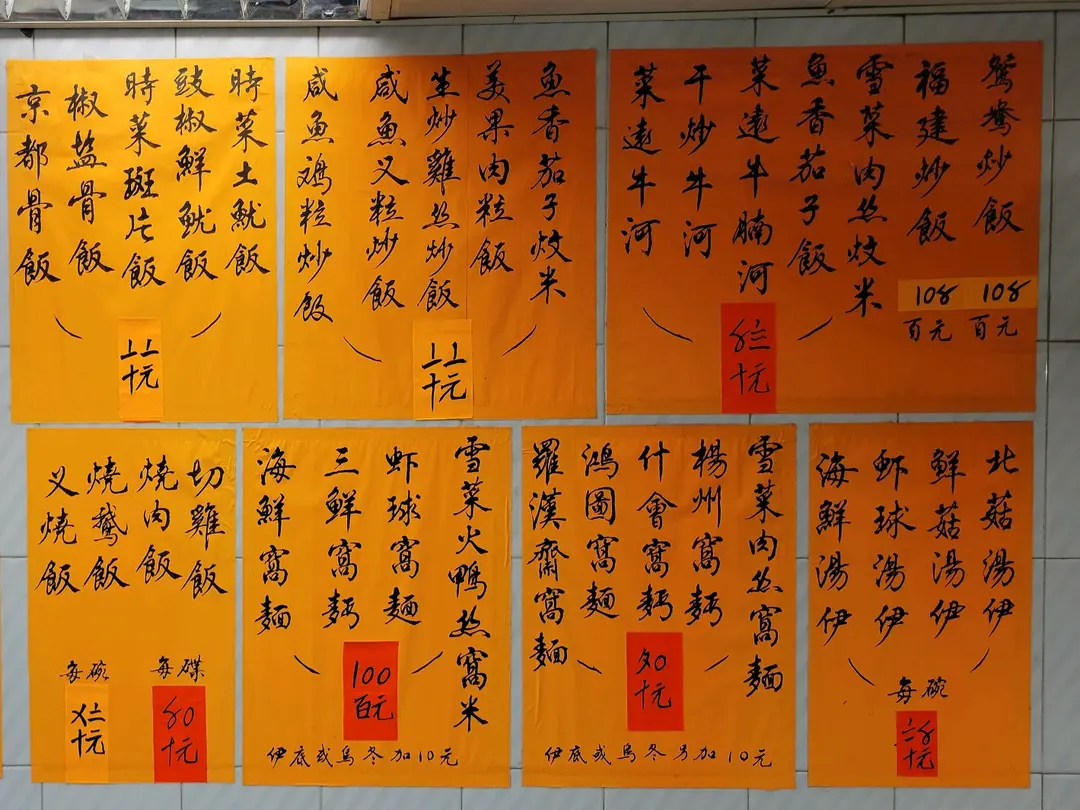 鴛鴦炒飯
福建炒飯
百元
百元
雪菜肉丝炆米
魚香茄子飯
菜遠牛腩河
干炒牛河
菜遠牛河
十元
魚香茄子炆米
美果肉粒飯
生炒雞丝炒飯
咸魚义粒炒飯
咸魚鸡粒炒飯
十元
時菜土魷飯
豉椒鮮魷飯
時菜斑片飯
椒盐骨飯
京都骨飯
十元
北菇湯伊
鮮菇湯伊
虾球湯伊
海鮮湯伊
每碗
十元
雪菜肉丝窩麵
楊州窩麵
什會窩麵
鴻圖窩麵
羅漢齋窩麵
〩0
十元
伊底或烏冬另加10元
雪菜火鴨丝窩米
虾球窩麵
三鮮窩麵
海鮮窩麵
100
百元
伊底或烏冬加10元
切雞飯
燒肉飯
燒鵝飯
义燒飯
每碟
十元
每碗
〤二
十元